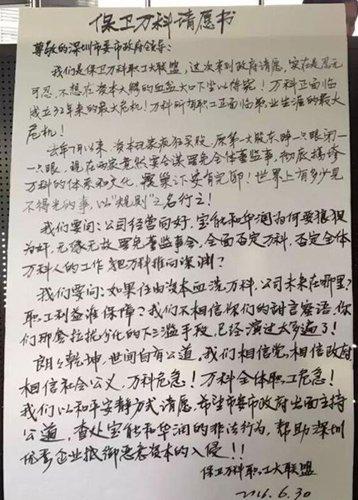 保卫万科请愿书
尊敬的深圳市委市政府领导：
我们是保卫万科职工大联盟，这次来到政府请愿，实在是忍无
可忍，不想在资本大鳄的血盆大口下坐以待毙！万科正面临
成立32年来的最大危机！万科所有职工正面临职业生涯的最大
危机！
去年7月以来，资本玩家疯狂买股，原第一大股东睁一只眼闭一
一只眼，现在两家竟然密谋罢免全体董监事，彻底摧毁
万科的体系和文化，覆巢之下安有完卵！世界上有多少见
不得光的事，以"规则"之名行之！
我们要问：公司经营向好，宝能和华润为何要狼狈
为奸，无缘无故罢免董监事会，全面否定万科，否定全体
万科人的工作，把万科推向深渊？
我们要问：如果任由资本血洗万科，公司未来在哪里？
职工利益谁保障？我们不相信你们的甜言蜜语，你
们那套拉拢分化的下三滥手段，已经演过太多遍了！
朗朗乾坤，世间自有公道，我们相信党，相信政府
相信社会公义，万科危急！万科全体职工危急！
我们以和平安静方式请愿，希望市委市政府出面主持
公道，查处宝能和华润的非法行为，帮助深圳
优秀企业抵御恶意资本的入侵！！
保卫万科职工大联盟
2016.6.30